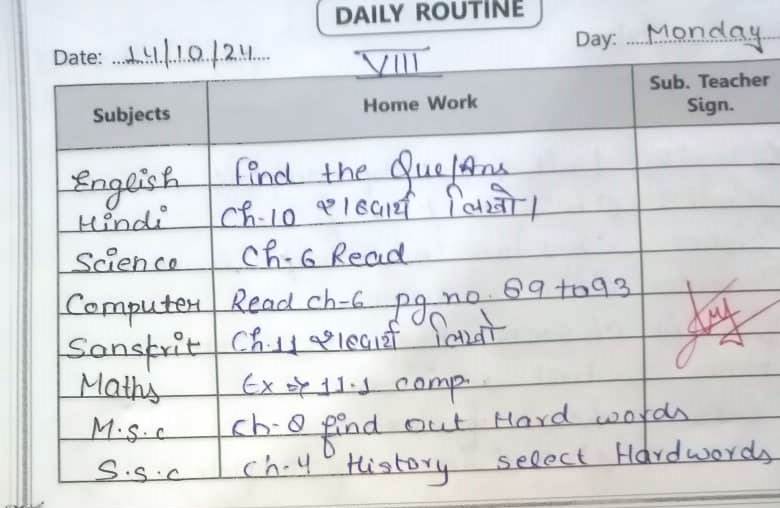 DAILY ROUTINE
Date: 14/10/24 Day: Monday
VIII
Subjects Home Work Sub. Teacher Sign.
English find the Que/Ans
Hindi Ch-10 शब्दार्थ लिखो।
Science Ch-6 Read
Computer Read ch-6 pg.no. 89 to 93
Sanskrit Ch.11 शब्दार्थ लिखो
Maths Ex 11.1 comp.
M.s.c Ch-8 find out Hard words
S.s.c Ch-4 History select Hardwords